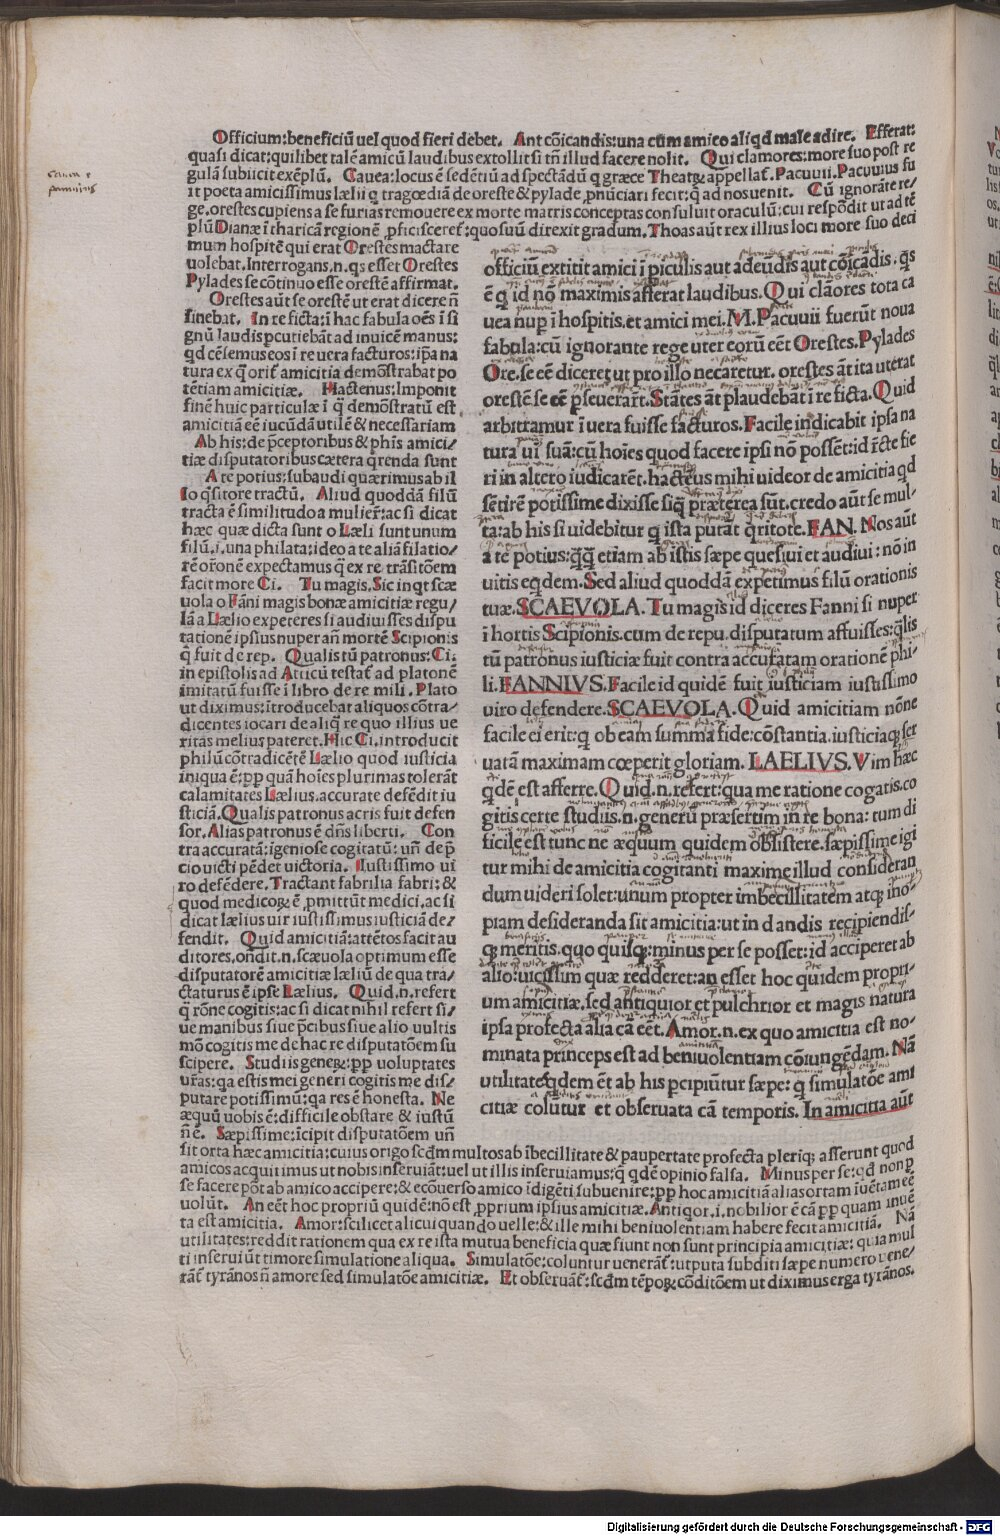 Officium:beneficiū uel quod fieri debet. Ant cōicandis:una cum amico aliqd male adire. Efferat:
quasi dicat:quilibet talē amicū laudibus extollit si tñ illud facere nolit. Qui clamores:more suo post re
gulā subiicit exēplū. Cauea:locus ē sedētiū ad spectādū q græce Theatrꝫ appellat̃. Pacuuii. Pacuuius fu
it poeta amicissimus lælii q tragœdiā de oreste & pylade p̄nūciari fecit:q̄ ad nos uenit. Cū ignorāte re/
ge.orestes cupiens a se furias remouere ex morte matris conceptas consuluit oraculū:cui respōdit ut ad tē
plū Dianæ ī tharicā regionē ꝓficisceret̃:quo suū direxit gradum. Thoas aūt rex illius loci more suo deci
mum hospitē qui erat Orestes mactare
uolebat. Interrogans.n.qs esset Orestes
Pylades se cōtinuo esse orestē affirmat.
Orestes aūt se orestē ut erat dicere ñ
sinebat. In re ficta:ī hac fabula oēs ī si
gnū laudis pcutiebāt ad inuicē manus:
qd cēsemus eos ī re uera facturos:ip̄a na
tura ex q̄ orit̃ amicitia demōstrabat po
tētiam amicitiæ. Hactenus:Imponit
finē huic particulæ ī q̄ demōstratū est
amicitiā eē iucūdā utilē & necessariam
Ab his:de p̄ceptoribus & ph̄is amici/
tiæ disputatoribus cætera q̄renda sunt
A te potius:subaudi quærimus ab il
lo q̄sitore tractū. Aliud quoddā filū
tracta ē similitudo a mulier̃:ac si dicat
hæc quæ dicta sunt o Læli sunt unum
filū.i.una philata:ideo a te aliā filatio/
rē orōnē expectamus q̄ ex re trāsitōem
facit more Ci. Tu magis. Sic inqt scæ
uola o Fāni magis bonæ amicitiæ regu/
lā a Lælio expeteres si audiuisses dispu
tationē ipsius nuper añ mortē Scipionis
q̄ fuit de rep. Qualis tū patronus:Ci.
in epistolis ad Atticū testat̃ ad platonē
imitatū fuisse ī libro de re mili. Plato
ut diximus:ītroducebat aliquos cōtra/
dicentes iocari de aliq̄ re quo illius ue
ritas melius pateret. Hic Ci.introducit
philū cōtradicētē Lælio quod iusticia
iniqua ē:ꝓp quā hoīes plurimas tolerāt
calamitates Lælius.accurate defēdit iu
sticiā. Qualis patronus acris fuit defen
sor. Alias patronus ē dñs liberti. Con
tra accuratā:īgeniose cogitatū:uñ de p̄
cio uicti pēdet uictoria. Iustissimo ui
ro defēdere. Tractant fabrilia fabri:&
quod medicoꝝ ē ꝓmittūt medici.ac si
dicat lælius uir iustissimus iusticiā de/
fendit. Quid amicitiā:attētos facit au
ditores.oñdit.n.scæuola optimum esse
disputatorē amicitiæ læliū de qua tra/
ctaturus ē ipse Lælius. Quid.n.refert
q̄ rōne cogitis:ac si dicat nihil refert si/
ue manibus siue p̄cibus siue alio uultis
mō cogitis me de hac re disputatōem su
scipere. Studiis generꝫ:ꝓp uoluptates
ur̄as:qa estis mei generi cogitis me dis/
putare potissimū:qa res ē honesta. Ne
æquū uobis ē:difficile obstare & iustū
ñ ē. Sæpissime:īcipit disputatōem uñ
officiū extitit amici ī piculis aut adeūdis aut cōicādis. qs
ē q id nō maximis afferat laudibus. Qui clāores tota ca
uea nup ī hospitis.et amici mei. M. Pacuuii fuerūt noua
fabula:cū ignorante rege uter eorū eēt Orestes. Pylades
Ore.se eē diceret ut pro illo necaretur. orestes āt ita ut erat
orestē se eē ꝑseuerar̃t. Stātes āt plaudebāt ī re ficta. Quid
arbitramur ī uera fuisse facturos. Facile indicabit ipsa na
tura uī suā:cū hoīes quod facere ipsi nō possēt:id r̄cte fie
ri in altero iudicarēt. hactēus mihi uideor de amicitia qd
sētirē potissime dixisse siq̄ præterea sūt.credo aūt se mul-
ta:ab his si uidebitur q ista putāt q̄ritote. FAN. Nos aūt
a te potius:q̄q̄ etiam ab istis sæpe quesiui et audiui:nō in
uitis eqdem. Sed aliud quoddā expetimus filū orationis
tuæ. SCAEVOLA. Tu magis id diceres Fanni si nuper
ī hortis Scipionis.cum de repu.disputatum affuisses:q̄lis
tū patronus iusticiæ fuit contra accusatam orationē phi-
li. FANNIVS. Facile id quidē fuit iusticiam iustissimo
viro defendere. SCAEVOLA. Quid amicitiam nōne
facile ei erit:q ob eam summa fide:cōstantia.iusticiaqꝫ ser
uatā maximam cœperit gloriam. LAELIVS. Vim hæc
qdē est afferre. Quid.n.refert:qua me ratione cogatis.co
gitis certe studiis.n.generū præsertim in re bona:tum di
ficile est tunc ne æquum quidem obsistere.sæpissime igi
tur mihi de amicitia cogitanti maxime illud consideran
dum uideri solet:unum propter imbecillitatem atqꝫ ino-
piam desideranda sit amicitia:ut in dandis recipiendis-
qꝫ meritis.quo quisqꝫ:minus per se posset:id acciperet ab
alio:uicissim quæ redderet:an esset hoc quidem propri-
um amicitiæ.sed antiquior et pulchrior et magis natura
ipsa profecta alia cā eēt. Amor.n.ex quo amicitia est no-
minata princeps est ad beniuolentiam cōiungēdam. Nā
utilitates qdem ēt ab his pcipiūtur sæpe:q simulatōe ami
citiæ colūtur et obseruata cā temporis. In amicitia aūt
sit orta hæc amicitia:cuius origo scđm multos ab ībecillitate & paupertate profecta pleriqꝫ asserunt quod
amicos acquitimus ut nobis inseruiāt:uel ut illis inseruiamus:q̄ qdē opinio falsa. Minus per se:qđ non p
se facere pōt ab amico accipere:& ecōuerso amico īdigēti subuenire:ꝓp hoc amicitiā alias ortam īuētam eē
uolūt. An eēt hoc propriū quidē:nō est ꝓprium ipsius amicitiæ. Antiqor.i.nobilior ē cā ꝓp quam inuē
ta est amicitia. Amor:scilicet alicui quando uelle:& ille mihi beniuolentiam habere fecit amicitiā. Nā
utilitates:reddit rationem qua ex re ista mutua beneficia quæ fiunt non sunt principia amicitiæ:quia mul
ti inseruiūt timore simulatione aliqua. Simulatōe:coluntur uenerāt̃:utputa subditi sæpe numero uene/
rāt̃ tyrānos ñ amore sed simulatōe amicitiæ. Et obseruāt̃:scđm tēpoꝝ cōditōem ut diximus erga tyrānos.
Digitalisierung gefördert durch die Deutsche Forschungsgemeinschaft - DFG